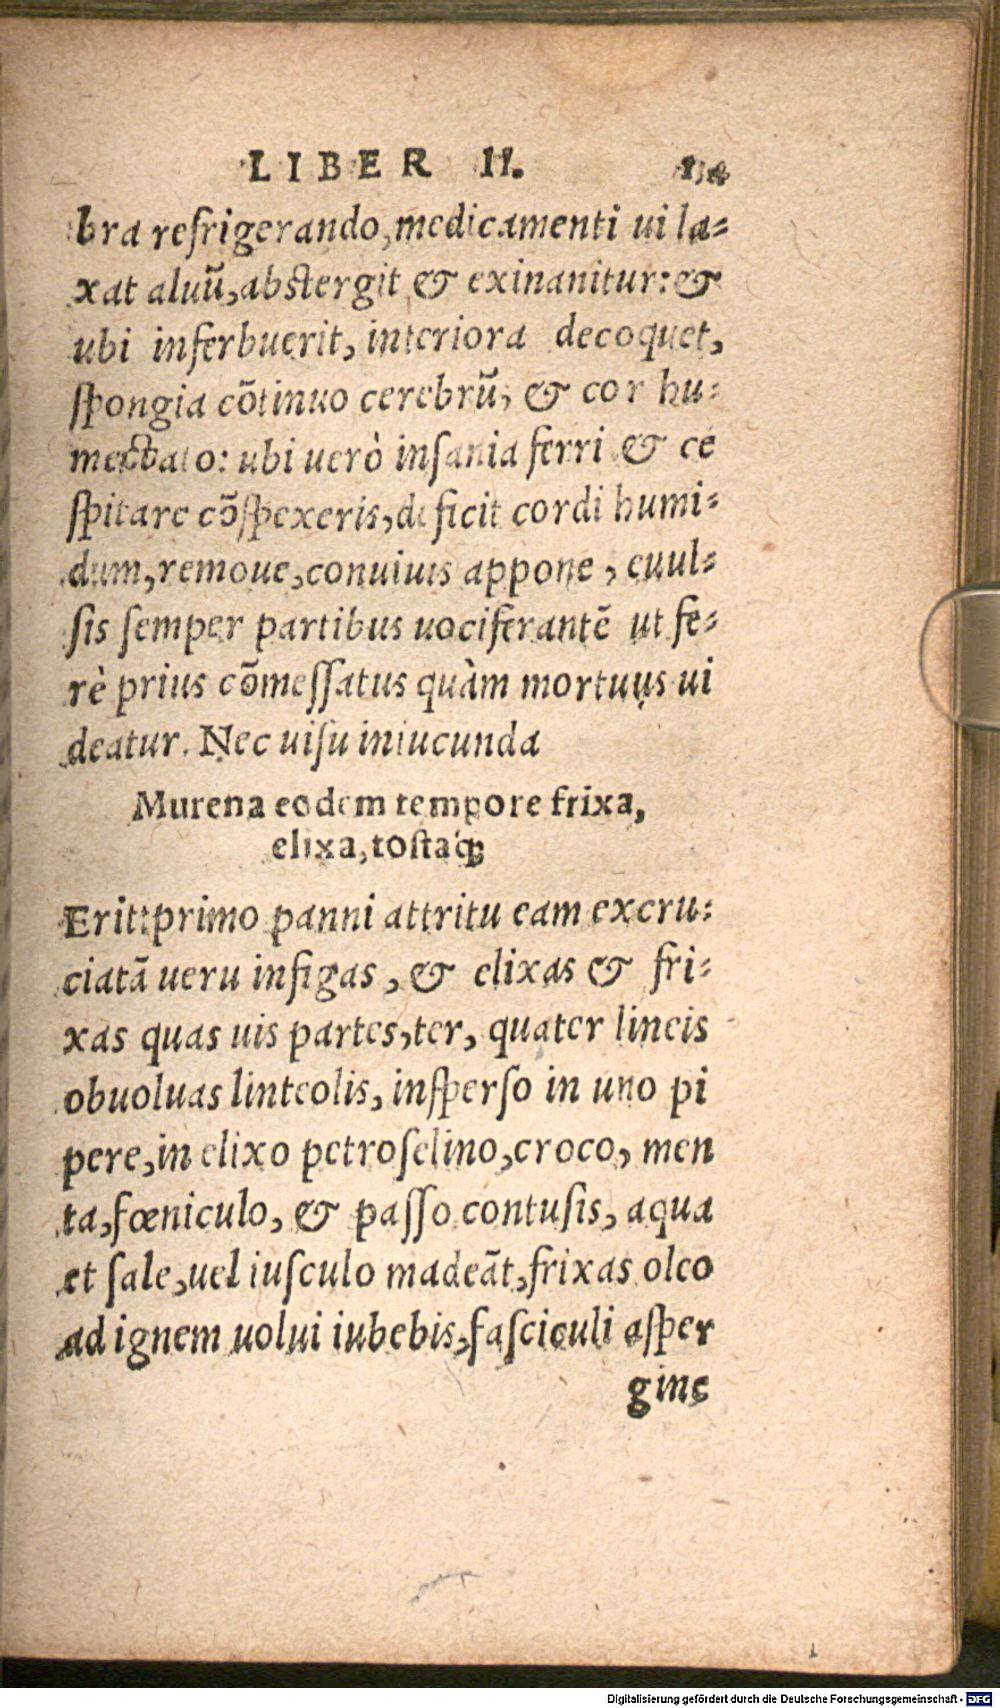 LIBER II.
bra refrigerando, medicamenti ui la-
xat aluũ, abstergit & exinanitur: &
ubi inferbuerit, interiora decoquet,
spongia cõtinuo cerebrũ, & cor hu-
mectato: ubi uerò insania ferri & ce
spitare cõspexeris, deficit cordi humi-
dum, remoue, conuiuis appone, euul-
sis semper partibus uociferantẽ ut fe-
rè prius cõmessatus quàm mortuus ui
deatur. Nec uisu iniucunda
Murena eodem tempore frixa,
elixa, tostaq́;
Erit: primo panni attritu eam excru-
ciatã ueru infigas, & elixas & fri-
xas quas uis partes, ter, quater lineis
obuoluas linteolis, insperso in uno pi
pere, in elixo petroselino, croco, men
ta, fœniculo, & passo contusis, aqua
et sale, uel iusculo madeãt, frixas oleo
ad ignem uolui iubebis, fasciculi asper
gine
Digitalisierung gefördert durch die Deutsche Forschungsgemeinschaft - DFG